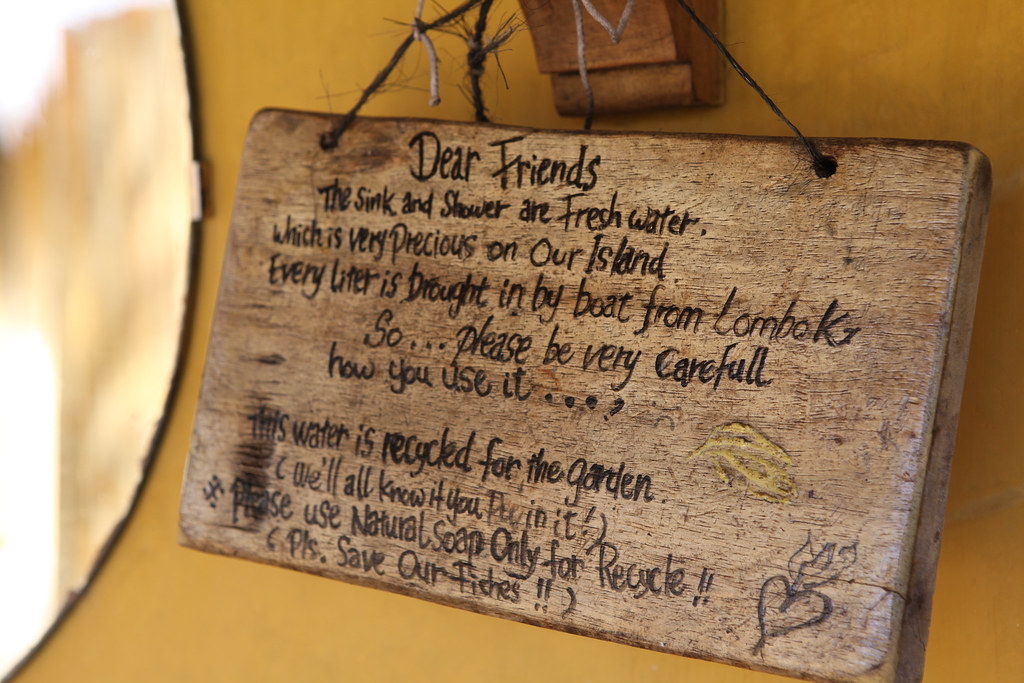 Dear Friends
The Sink and Shower are Fresh water.
which is very Precious on Our Island
Every Liter is Brought in by boat from Lombok
So... please be very Carefull
how you use it ....,
This water is recycled for the garden.
( We'll all know if you in it!)
Please use Natural Soap Only for Recycle!!
( Pls. Save Our Fishes!!)